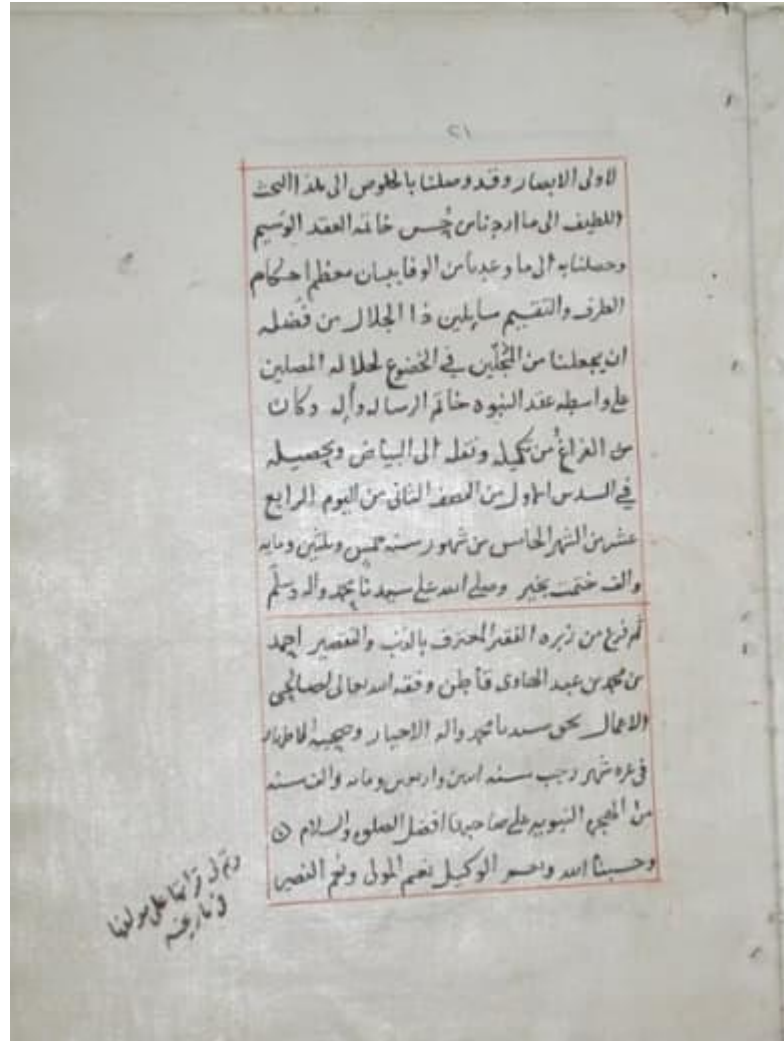 ٢١
لاولى الابصار وقد وصلنا بالخلوص الى هذا البحث
اللطيف الى ما اردناس حُسن خاتمه العقد الوسيم
وحصلنا به الى ما وعدنا من الوفا ببيان معظم احكام
الطرف والتقسيم سايلين ذا الجلال من فضله
ان يجعلنا من المُجلّين في الخضوع لجلاله المصلين
على واسطه عقد النبوه خاتم الرساله وأله وكان
من الفراغ من تكميله ونقله الى البياض وتحصيله
في السدس الاول من النصف الثاني من اليوم الرابع
عشر من الشهر الخامس من شهور سنه خمس وثلثين ومايه
والف ختمت بخير وصلى الله على سيدنا محمد واله وسلم
ثم فرغ من زبره الفقير المعترف بالذنب والتقصير احمد
بن محمد بن عبد الهادى قاطن وفقه الله تعالى لصالحي
الاعمال بحق سيدنا محمد واله الاخيار وصحبه
فى غره شهر رجب سنه اثنين واربعين ومايه والف سنه
من الهجره النبويه على صاحبها افضل الصلوه والسلام
وحسبنا الله ونعم الوكيل نعم المولى ونعم النصير
وتم لي قرأتها على مولفها
في تاريخه